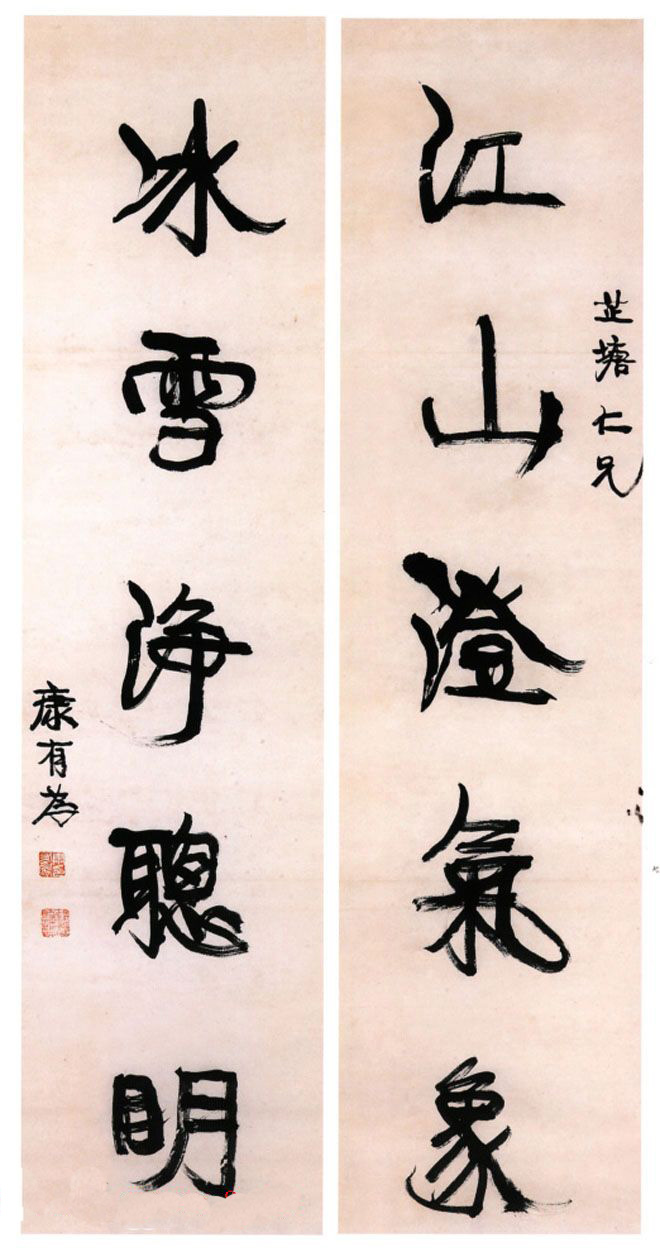 芷塘仁兄
江山澄氣象
冰雪淨聰明
康有為